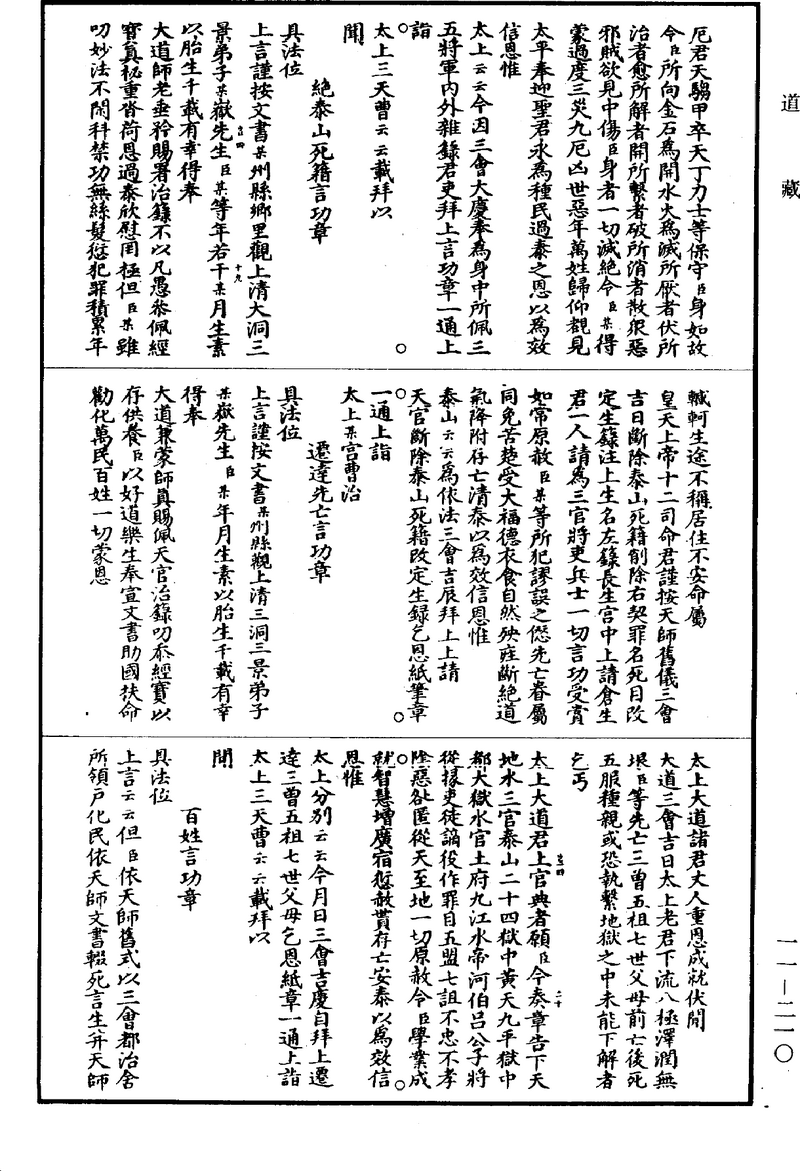 道藏
厄君天騶甲卒天丁力士等保守臣身如故
令臣所向金石為開水火為滅所厭者伏所
治者愈所解者開所繫者破所消者散眾惡
邪賊欲見中傷臣身者一切滅絕令臣某得
蒙過度三災九厄凶世惡年萬姓歸仰覩見
太平奉迎聖君永為種民過泰之恩以為效
信恩惟
太上云云今因三會大慶奉為身中所佩三
五將軍內外雜錄君吏拜上言功章一通上
詣
太上三天曹云云載拜以
聞
絕泰山死籍言功章
具法位
上言謹按文書某州縣鄉里觀上清大洞三
景弟子某嶽先生臣某等年若干某月生素
以胎生千載有幸得奉
大道師老垂矜賜署治錄不以凡愚忝佩經
寶真秘重沓荷恩過泰欣慰罔極但臣某雖
叨妙法不閑科禁功無絲髮愆犯罪積累年
轗軻生途不稱居住不安命屬
皇天上帝十二司命君謹按天師舊儀三會
吉日斷除泰山死籍削除右契罪名死目改
定生錄注上生名左錄長生宮中上請倉生
君一人請為三官將吏兵士一切言功受賞
如常原赦臣某等所犯謬誤之愆先亡眷屬
同免苦楚受大福德衣食自然殃疰斷絕道
氣降附存亡清泰以為效信恩惟
泰山云云為依法三會吉辰拜上上請
天官斷除泰山死籍改定生錄乞恩紙筆章
一通上詣
太上某宮曹治
遷達先亡言功章
具法位
上言謹按文書某州縣觀上清三洞三景弟子
某嶽先生臣某年月生素以胎生千載有幸
得奉
大道兼蒙師真賜佩天官治籙叨忝經寶以
存供養臣以好道樂生奉宣文書助國扶命
勸化萬民百姓一切蒙恩
太上大道諸君丈人重恩成就伏聞
大道三會吉日太上老君下流八極澤潤無
垠臣等先亡三曾五祖七世父母前亡後死
五服種親或恐執繫地獄之中未能下解者
乞丐
太上大道君上官典者願臣今奏章告下天
地水三官泰山二十四獄中黃天九平獄中
都大獄水官土府九江水帝河伯呂公子將
從掾吏徒謫役作罪目五盟七詛不忠不孝
陰惡咎匿從天至地一切原赦令臣學業成
就智慧增廣宿愆赦貰存亡安泰以為效信
恩惟
太上分別云云今月日三會吉慶自拜上遷
達三曾五祖七世父母乞恩紙章一通上詣
太上三天曹云云載拜以
聞
百姓言功章
具法位
上言云云但臣依天師舊式以三會都治舍
所領戶化民依天師文書輟死言生并天師
一一—二一〇